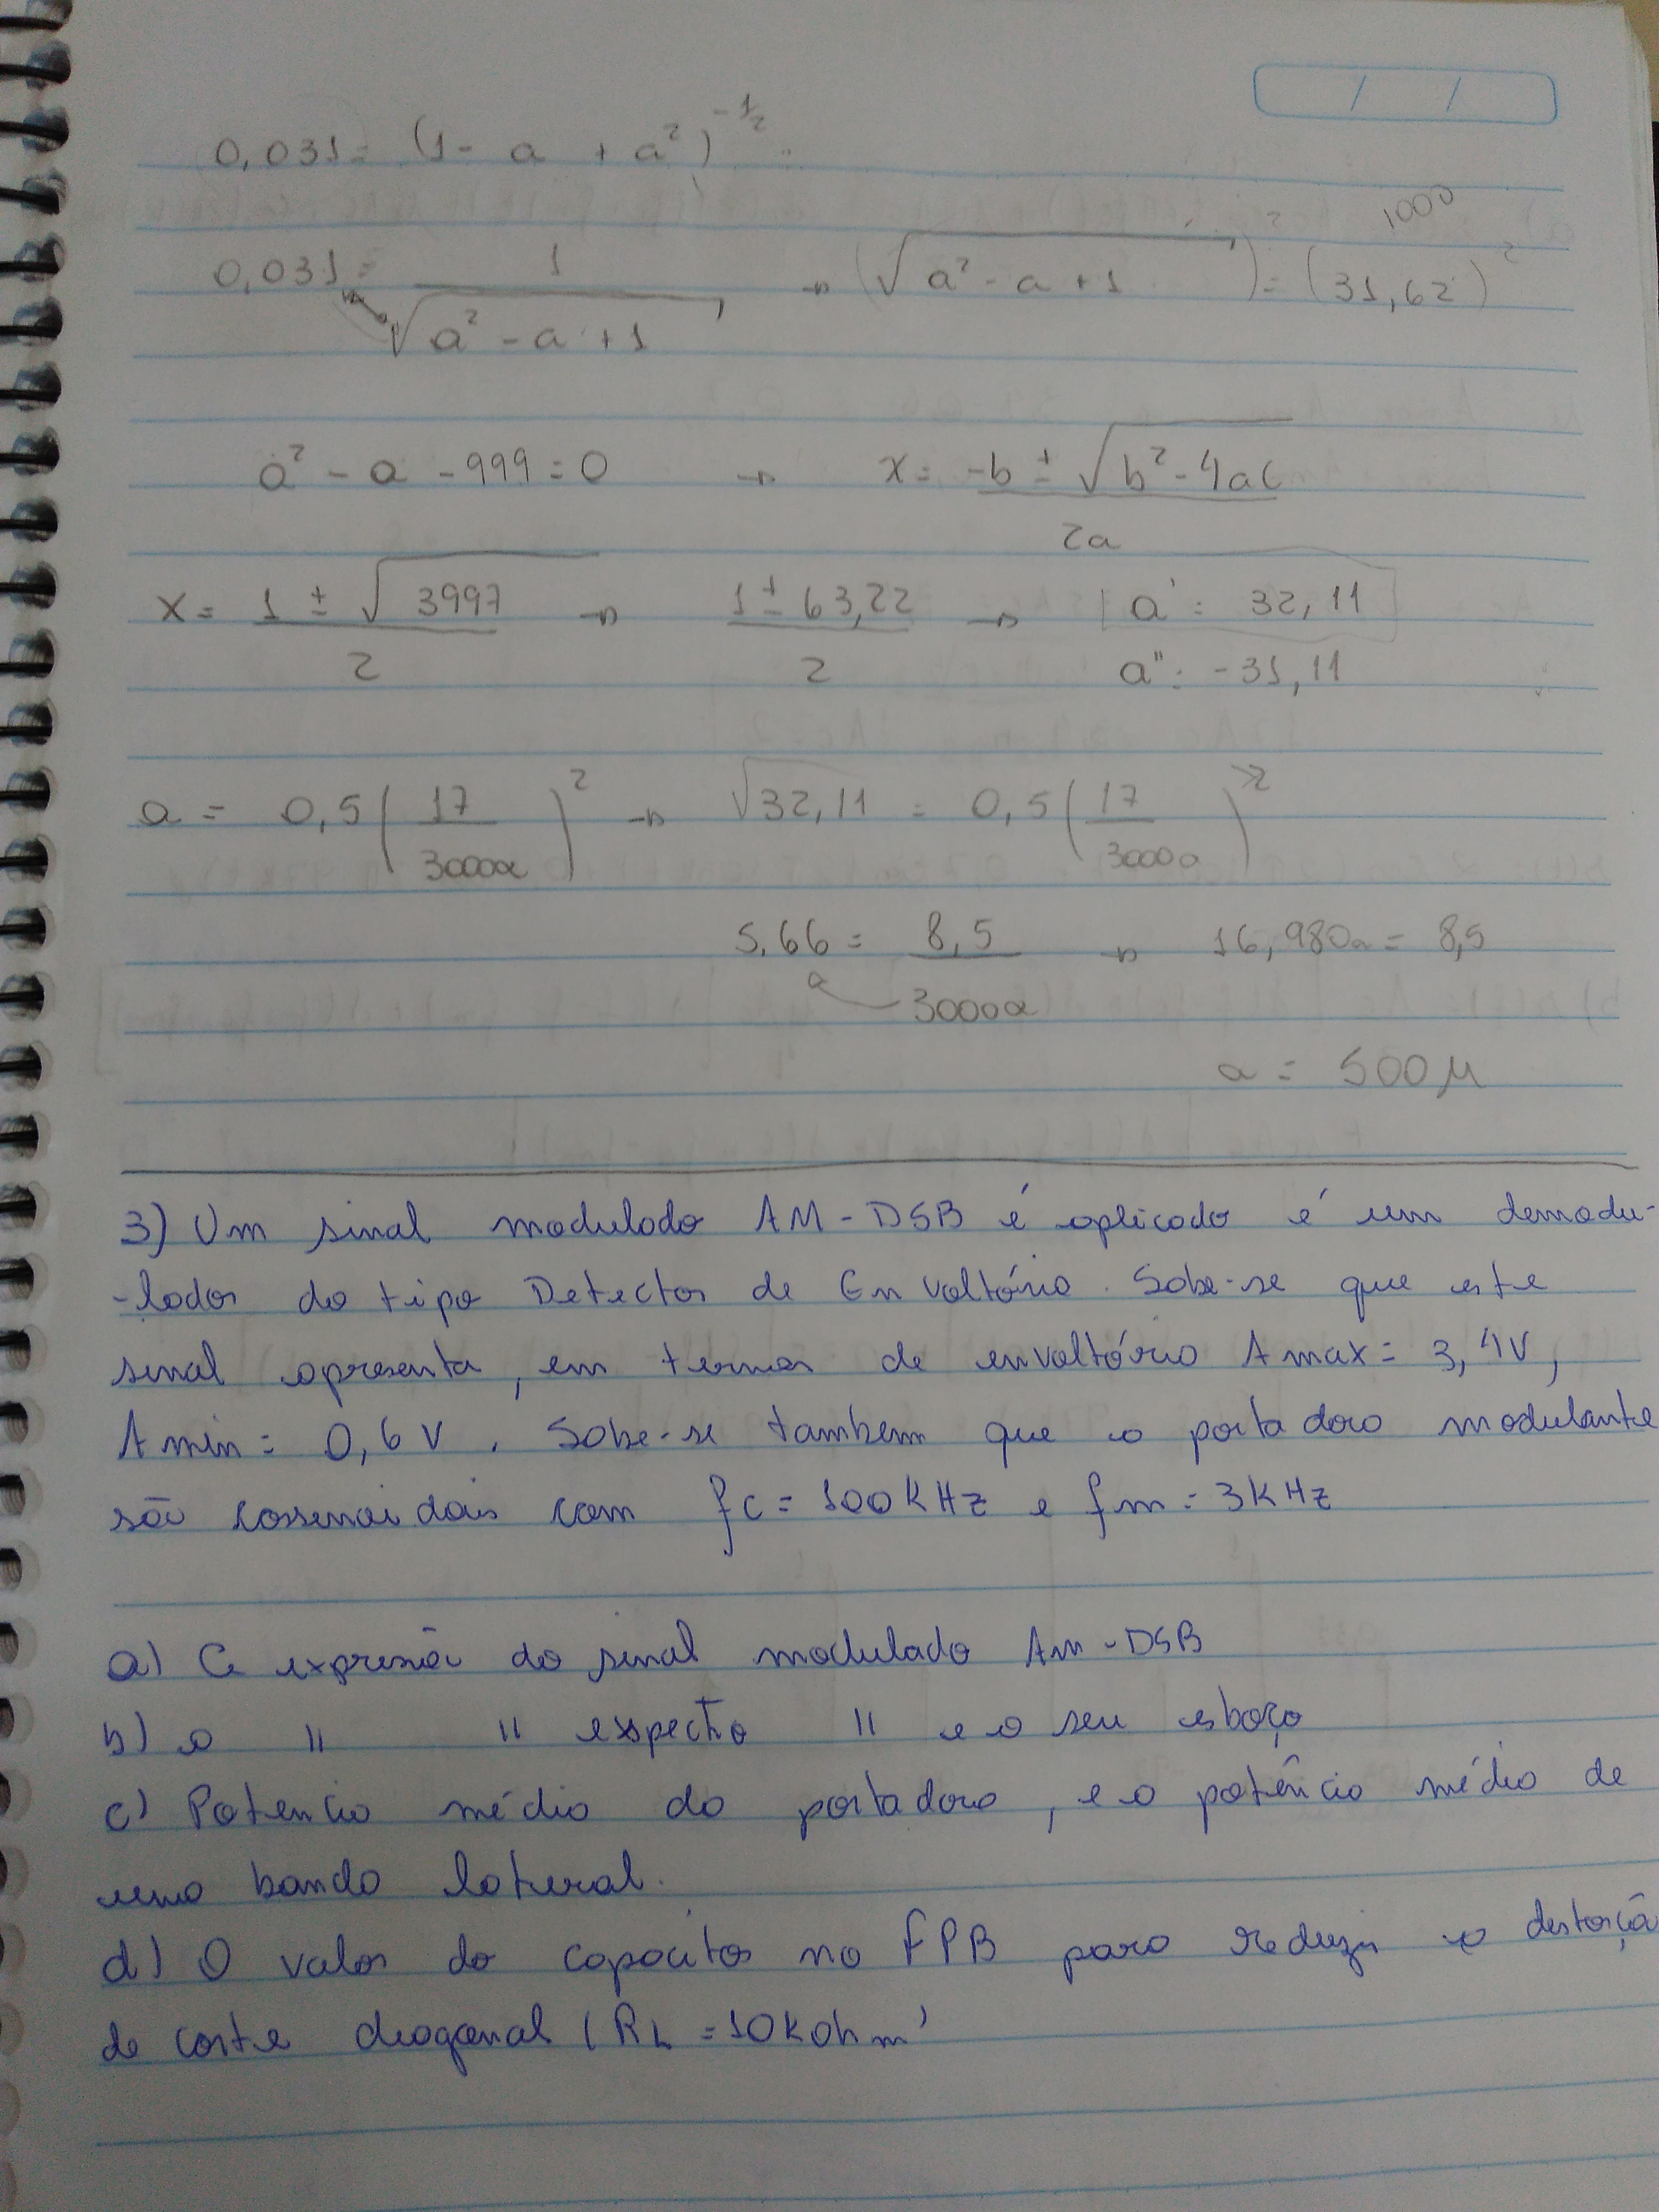 / /
0,031 = (1 - a + a²)^-1/2
1000
0,031 = 1/√(a² - a + 1) → (√(a² - a + 1))² = (31,62)²
a² - a - 999 = 0 → x = (-b ± √(b² - 4ac))/2a
x = (1 ± √3997)/2 → (1 ± 63,22)/2 → a' = 32,11
a'' = -31,11
a = 0,5(17/3000a)² → √32,11 = 0,5(17/3000a)²
5,66 = 8,5/3000a → 16,980a = 8,5
a = 500µ
3) Um sinal modulado AM-DSB é aplicado é um demodu-
-lador do tipo Detector de Envoltória. Sabe-se que este
sinal apresenta, em termos de envoltória Amax = 3,4V,
Amin = 0,6V. Sabe-se tambem que a portadora modulante
são cossenoidais com fc = 100KHz e fm = 3KHz
a) A expressão do sinal modulado AM-DSB
b) o " " espectro " e o seu esboço
c) Potencia média da portadora, e a potência média de
uma banda lateral.
d) O valor do capacitor no FPB para reduzir a distorção
de corte diagonal (RL = 10Kohm)